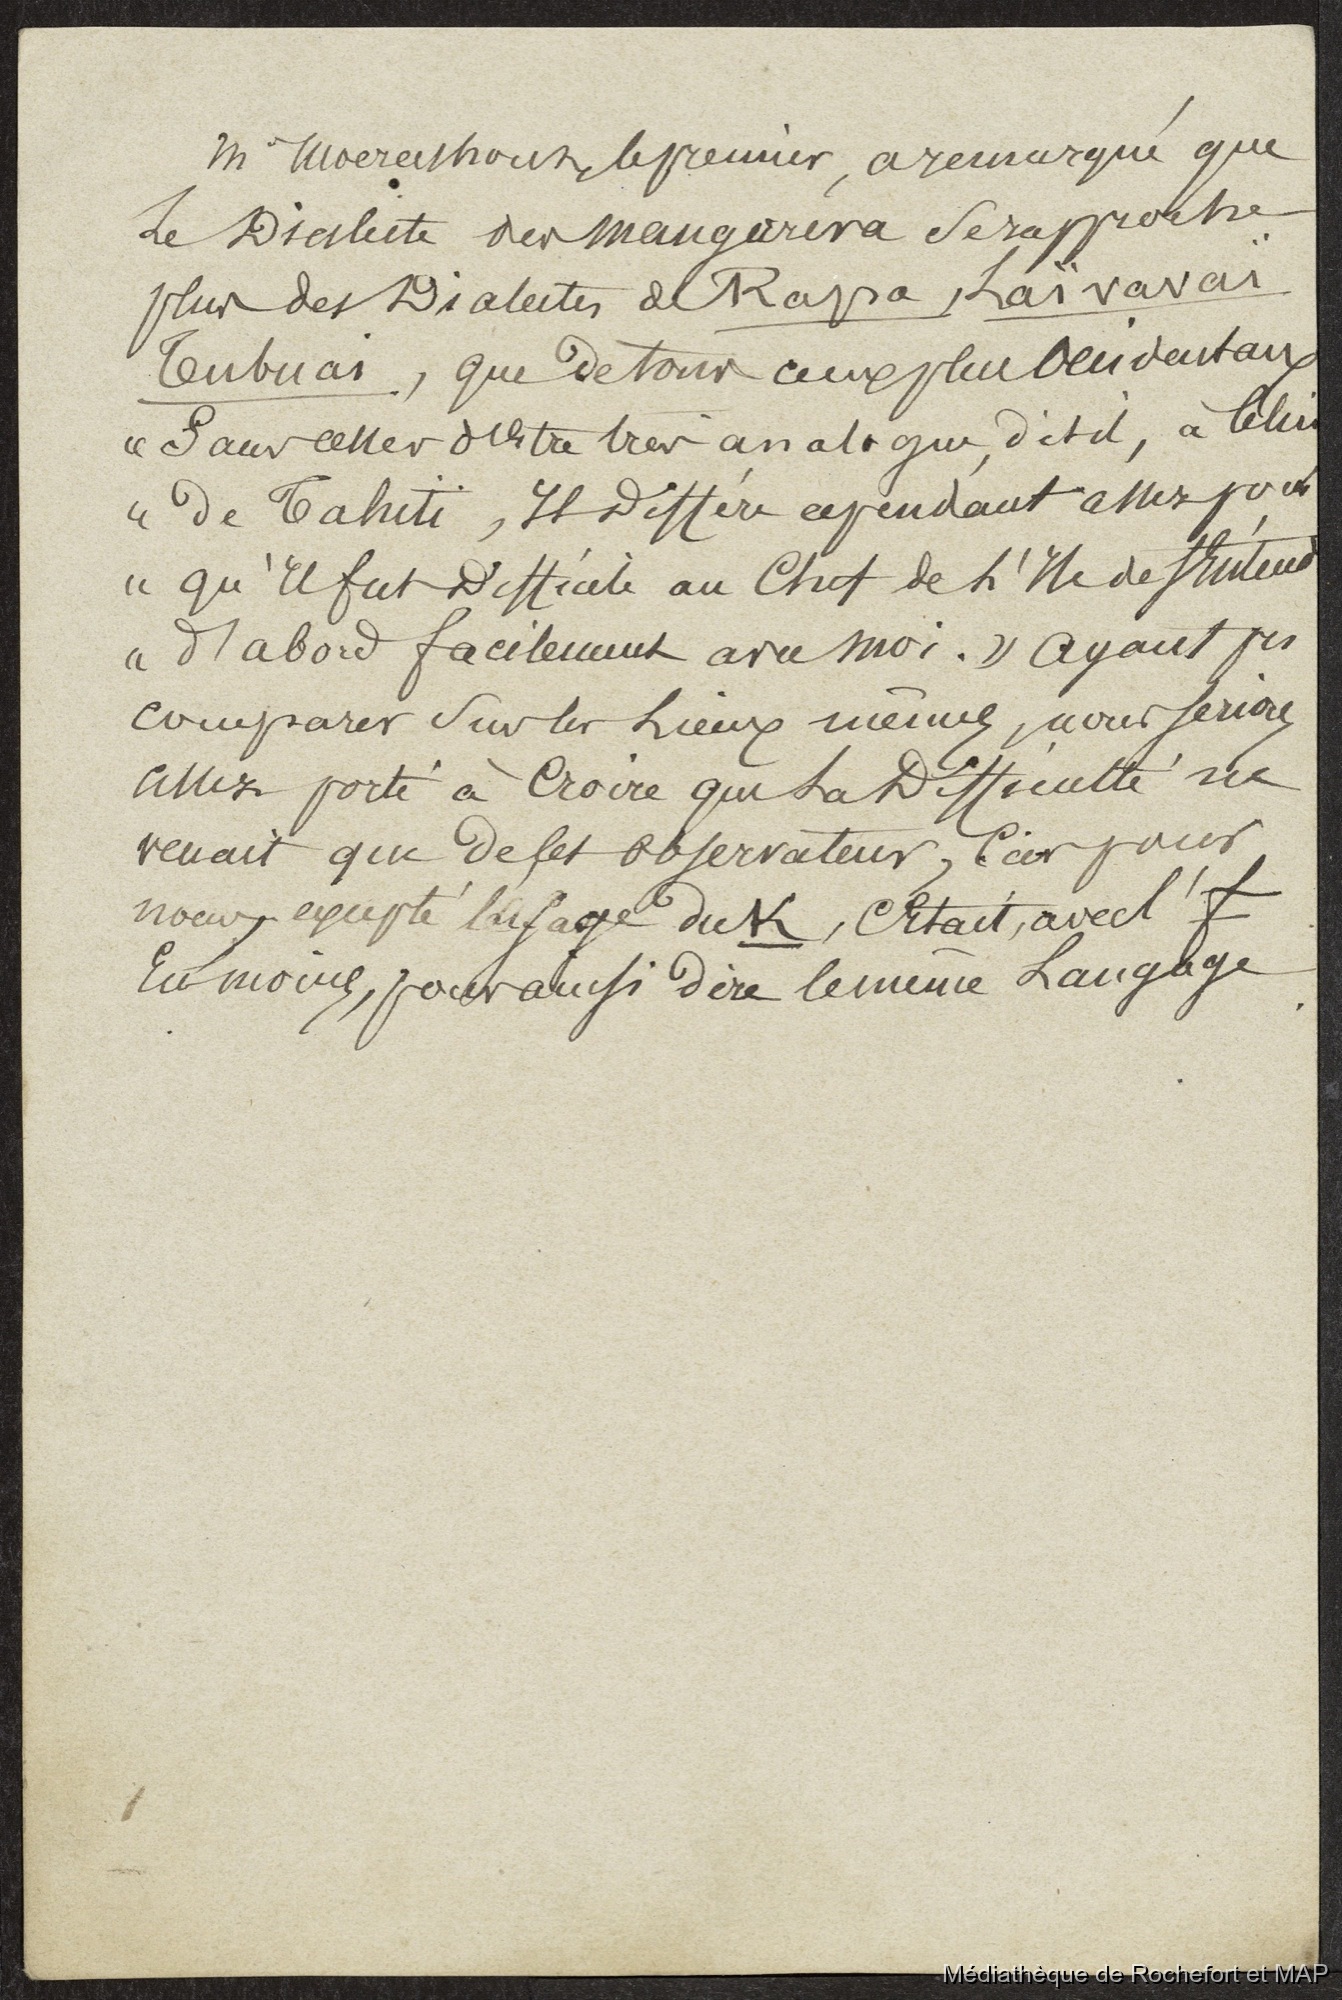 Mr Moerenhout, le premier, a remarqué que
Le Dialecte des Mangaréva se rapproche
plus des Dialectes de Rapa, Laïvavaï
Tubuai, que de tous ceux plus Occidentaux
« Sans cesser d'être très analogue, dit il, à Celui
« de Tahiti, Il Diffère cependant assez pour
« qu'Il fut Difficile au Chef de L'Ile de s'Entend
« d'abord facilement avec moi. » Ayant pu
comparer Sur les Lieux mêmes, nous serions
assez porté à Croire que La Difficulté ne
venait que de ses Observateurs, Car pour
nous, excepté l'usage du K, C'Etait, avec l'f
En moins, pour ainsi dire le même Langage
Médiathèque de Rochefort et MAP